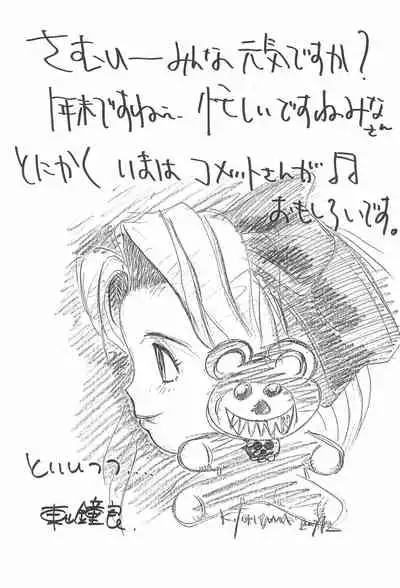 さむいーみんな 元気ですか?
年末ですねぇ 忙しいですねみなさん
とにかく いまは コメットさんが♫
おもしろいです。
といいつつ.....